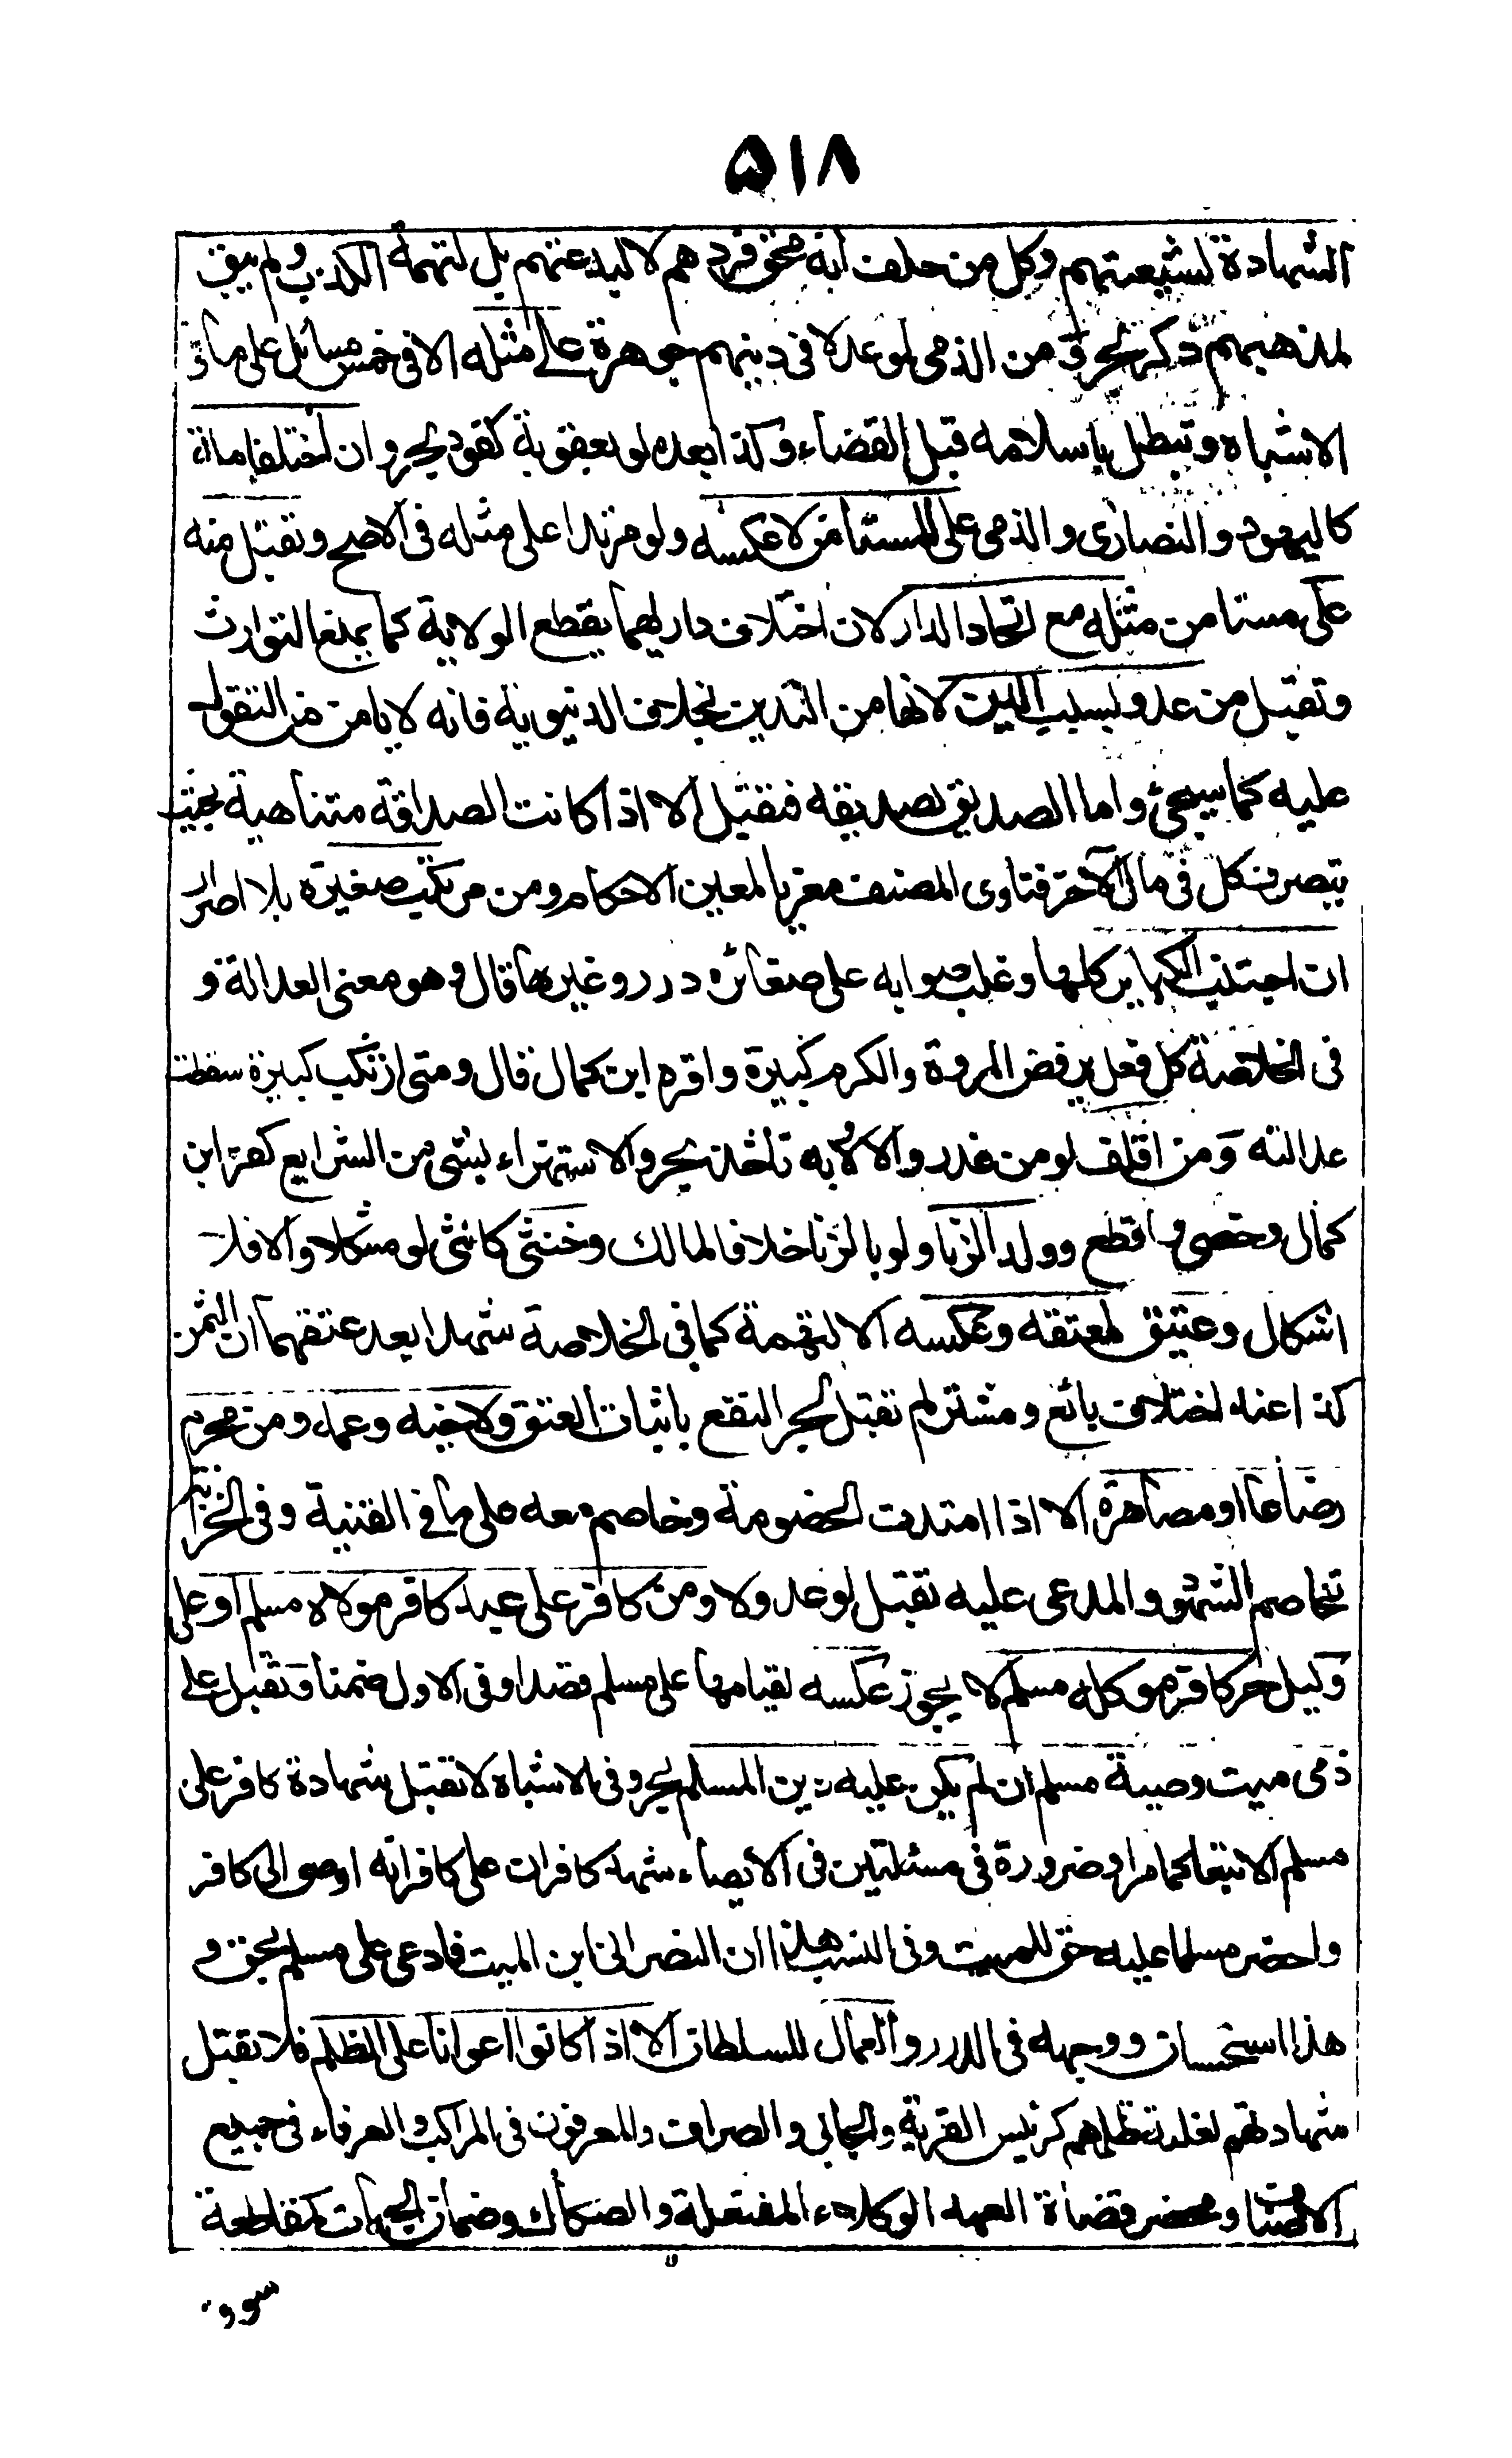 ٥١٨
الشهادة لشيعتهم وكل من حلف انه محق فردهم لا لبدعتهم بل لتهمة الكذب ولم يبق
لمذهبهم ذكر بحر و من الذمى لو عدلا فى دينهم جوهرة على مثله الا فى خمس مسائل على ما فى
الاشباه وتبطل باسلامه قبل القضاء وكذا بعده لو بعقوبة كقود بحر وان اختلفا ملة
كاليهود والنصارى والذمى على المستامن لا عكسه ولو مرتدا على مثله فى الاصح وتقبل منه
على مستامن مثله مع اتحاد الدار لان اختلاف داريهما يقطع الولاية كما يمنع التوارث
وتقبل من عدو بسبب الدين لانها من التدين بخلاف الدنيوية فانه لا يامن من التقول
عليه كما سيجئ واما الصديق لصديقه فتقبل الا اذا كانت الصداقة متناهية بحيث
يتصرف كل فى مال الآخر فتاوى المصنف معزيا لمعين الاحكام ومن مرتكب صغيرة بلا اصرار
ان اجتنب الكباير كلها وغلب صوابه على صغائره درر وغيرها قال وهو معنى العدالة و
فى الخلاصة كل فعل يرفض المروة والكرم كبيرة واقره ابن كمال قال ومتى ارتكب كبيرة سقطت
عدالته ومن اقلف لو من عذر والا لا به ناخذ بحر والاستهزاء بشى من الشرايع كفر ابن
كمال وخصى و اقطع وولد الزنا ولو بالزنا خلافا لمالك وخنثى كانثى لو مشكلا والا فلا
اشكال وعتيق لمعتقه وعكسه الا لتهمة كما فى الخلاصة شهدا بعد عتقهما ان الثمن
كذا عند اختلاف بائع ومشتر لم تقبل لجر النفع باثبات العتق ولاخيه وعمه ومن محرم
رضاعا او مصاهرة الا اذا امتدت الخصومة وخاصم معه على ما فى القنية وفى الخزانة
تخاصم الشهود والمدعى عليه تقبل لو عدولا ومن كافر على عبد كافر مولاه مسلم او على
وكيل حر كافر موكله مسلم لا يجوز عكسه لقيامها على مسلم قصدا وفى الاول ضمنا وتقبل على
ذمى ميت وصيه مسلم ان لم يكن عليه دين المسلم بحر وفى الاشباه لا تقبل شهادة كافر على
مسلم الا تبعا كما مر او ضرورة فى مسئلتين فى الايصاء شهد كافران على كافر انه اوصى الى كافر
واحضر مسلما عليه حق للميت وفى النسب شهدا ان النصرانى ابن الميت فادعى على مسلم بحق و
هذا استحسان ووجهه فى الدرر والعمال للسلطان الا اذا كانوا اعوانا على الظلم فلا تقبل
شهادتهم لغلبة ظلمهم كرئيس القرية والجابى والصراف والمعرفون فى المراكب والعرفاء فى جميع
الاصناف ومحضر قضاة العهد الوكلاء المفتعلة والصكاك وضمان الجهات كمقاطعة
سوق